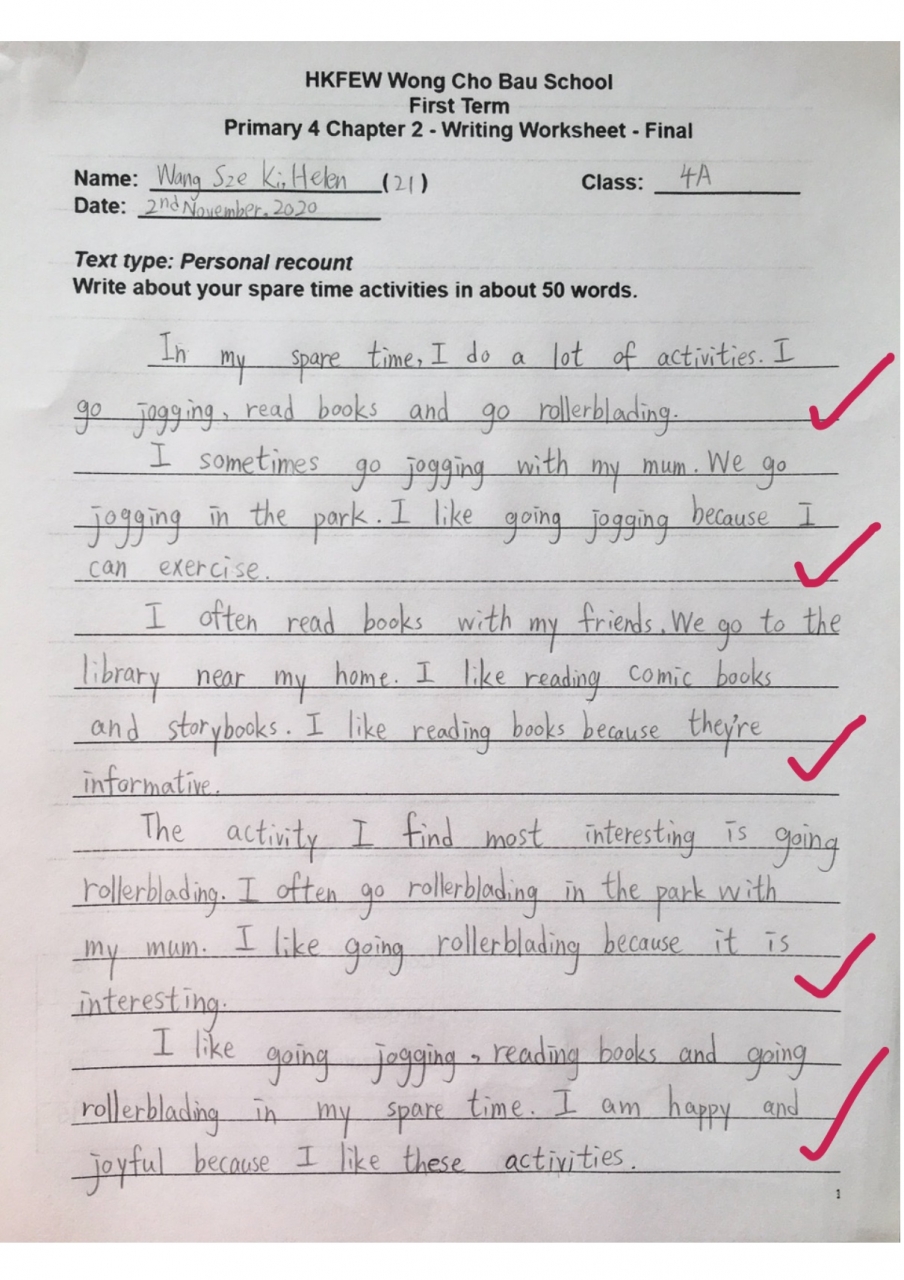 HKFEW Wong Cho Bau School
First Term
Primary 4 Chapter 2 - Writing Worksheet - Final
Name: Wang Sze Ki, Helen (21) Class: 4A
Date: 2nd November. 2020
Text type: Personal recount
Write about your spare time activities in about 50 words.
In my spare time, I do a lot of activities. I
go jogging, read books and go rollerblading.
I sometimes go jogging with my mum. We go
jogging in the park. I like going jogging because I
can exercise.
I often read books with my friends. We go to the
library near my home. I like reading comic books
and storybooks. I like reading books because they're
informative.
The activity I find most interesting is going
rollerblading. I often go rollerblading in the park with
my mum. I like going rollerblading because it is
interesting.
I like going jogging, reading books and going
rollerblading in my spare time. I am happy and
joyful because I like these activities.
1